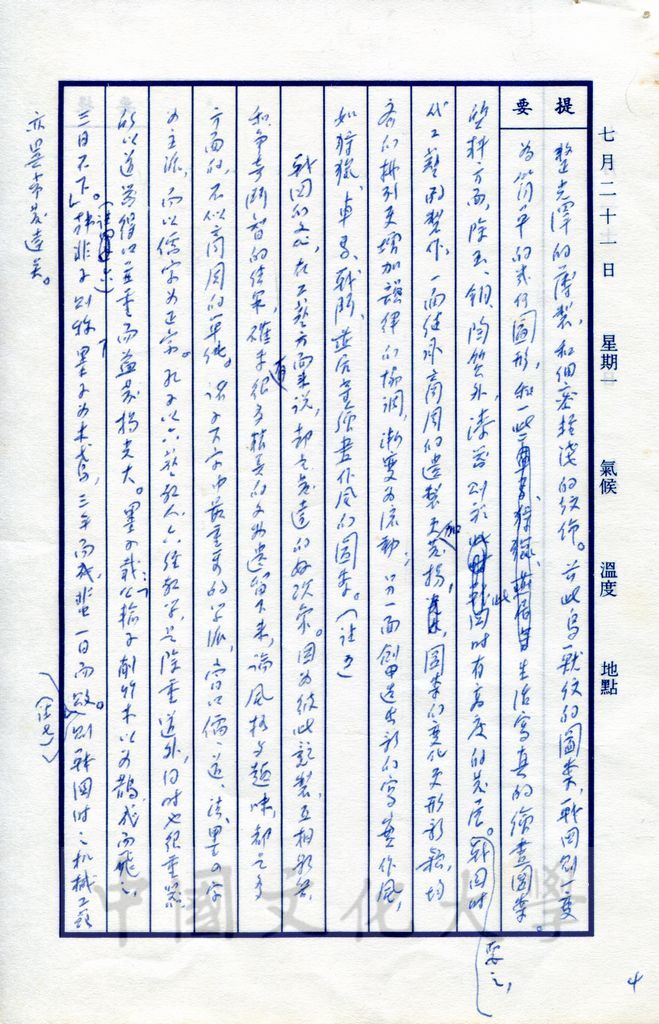 七月二十一日 星期一 氣候 溫度 地點
提要
整光澤的薄製,和細密輕淺的紋飾。前此鳥獸紋的圖案,戰國則一變
為簡單的幾何圖形,和一些生活寫真的繪畫圖案。
質料方面,除玉、銅、陶質外,漆器則於此時有高度的発展。戰國時
代工藝的製作,一面徒承商周的遺製更加発揚,圖案的變化更形新穎,均
齊的排列更增加韻律的協調,漸變為流動;另一面創甲造出新的寫真作風,
如狩獵、車馬、戰鬥、燕居等繪畫作風的圖案。(註五)
戰國的文化,在工藝方面來說,却是発達的好現象。因為彼此競製,互相影響,
和爭奇鬥智的結果,確乎很多精美的文物遺留下來,論風格与趣味,都是多
方面的,不似商周的單純。諸子百家中最重要的學派,當以儒、道、法、墨四家
為主流,而以儒家為正宗。孔子以六藝教人,六經教學,是除重道外,同時也很重器。
所以道器得以並重而益発揚光大。墨子載:「公輸子削竹木以為鵲,成而飛之,
三日不下」。(註六)韓非子則称墨子為木鳶,三年而成,蜚一日而敗。(註七)則戰國時之機械工藝
亦異常発達矣。
要之,
4
中國文化大學